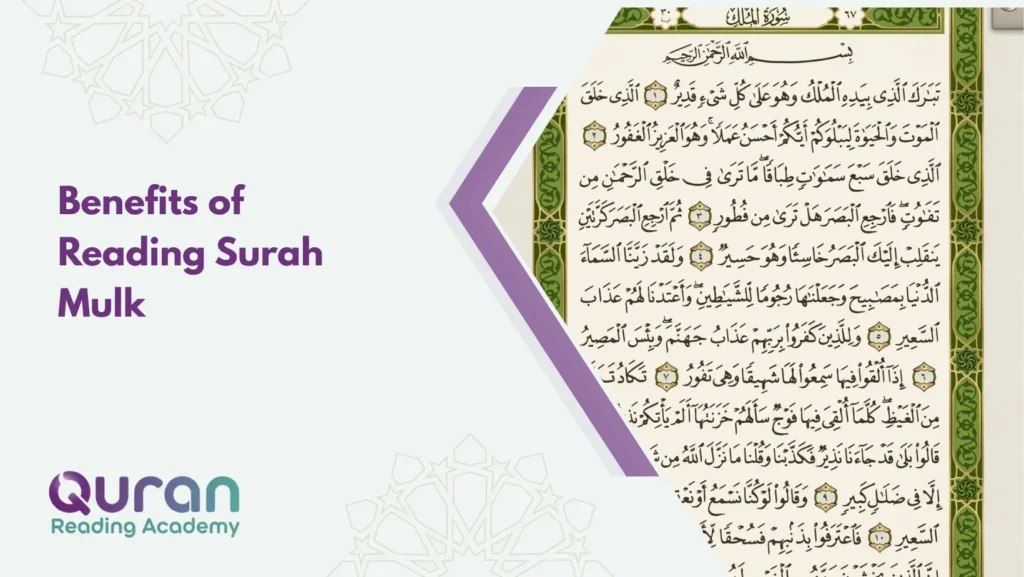 Benefits of
Reading Surah
Mulk
Quran
Reading Academy
٦٧ سُورَةُ الْمُلْكِ ٣٠
بِسْمِ اللَّهِ الرَّحْمَٰنِ الرَّحِيمِ
تَبَٰرَكَ ٱلَّذِى بِيَدِهِ ٱلْمُلْكُ وَهُوَ عَلَىٰ كُلِّ شَىْءٍ قَدِيرٌ ١ ٱلَّذِى خَلَقَ
ٱلْمَوْتَ وَٱلْحَيَوٰةَ لِيَبْلُوَكُمْ أَيُّكُمْ أَحْسَنُ عَمَلًا ۚ وَهُوَ ٱلْعَزِيزُ ٱلْغَفُورُ ٢
ٱلَّذِى خَلَقَ سَبْعَ سَمَٰوَٰتٍ طِبَاقًا ۖ مَّا تَرَىٰ فِى خَلْقِ ٱلرَّحْمَٰنِ مِن
تَفَٰوُتٍ ۖ فَٱرْجِعِ ٱلْبَصَرَ هَلْ تَرَىٰ مِن فُطُورٍ ٣ ثُمَّ ٱرْجِعِ ٱلْبَصَرَ كَرَّتَيْنِ
يَنقَلِبْ إِلَيْكَ ٱلْبَصَرُ خَاسِئًا وَهُوَ حَسِيرٌ ٤ وَلَقَدْ زَيَّنَّا ٱلسَّمَآءَ
ٱلدُّنْيَا بِمَصَٰبِيحَ وَجَعَلْنَٰهَا رُجُومًا لِّلشَّيَٰطِينِ ۖ وَأَعْتَدْنَا لَهُمْ عَذَابَ
ٱلسَّعِيرِ ٥ وَلِلَّذِينَ كَفَرُوا۟ بِرَبِّهِمْ عَذَابُ جَهَنَّمَ ۖ وَبِئْسَ ٱلْمَصِيرُ
٦ إِذَآ أُلْقُوا۟ فِيهَا سَمِعُوا۟ لَهَا شَهِيقًا وَهِىَ تَفُورُ ٧ تَكَادُ
مِنَ ٱلْغَيْظِ ۖ كُلَّمَآ أُلْقِىَ فِيهَا فَوْجٌ سَأَلَهُمْ خَزَنَتُهَآ أَلَمْ يَأْتِكُمْ
قَالُوا۟ بَلَىٰ قَدْ جَآءَنَا نَذِيرٌ فَكَذَّبْنَا وَقُلْنَا مَا نَزَّلَ ٱللَّهُ مِن
إِلَّا فِى ضَلَٰلٍ كَبِيرٍ ٩ وَقَالُوا۟ لَوْ كُنَّا نَسْمَعُ أَوْ
ٱلسَّعِيرِ ١٠ فَٱعْتَرَفُوا۟ بِذَنۢبِهِمْ فَسُحْقًا